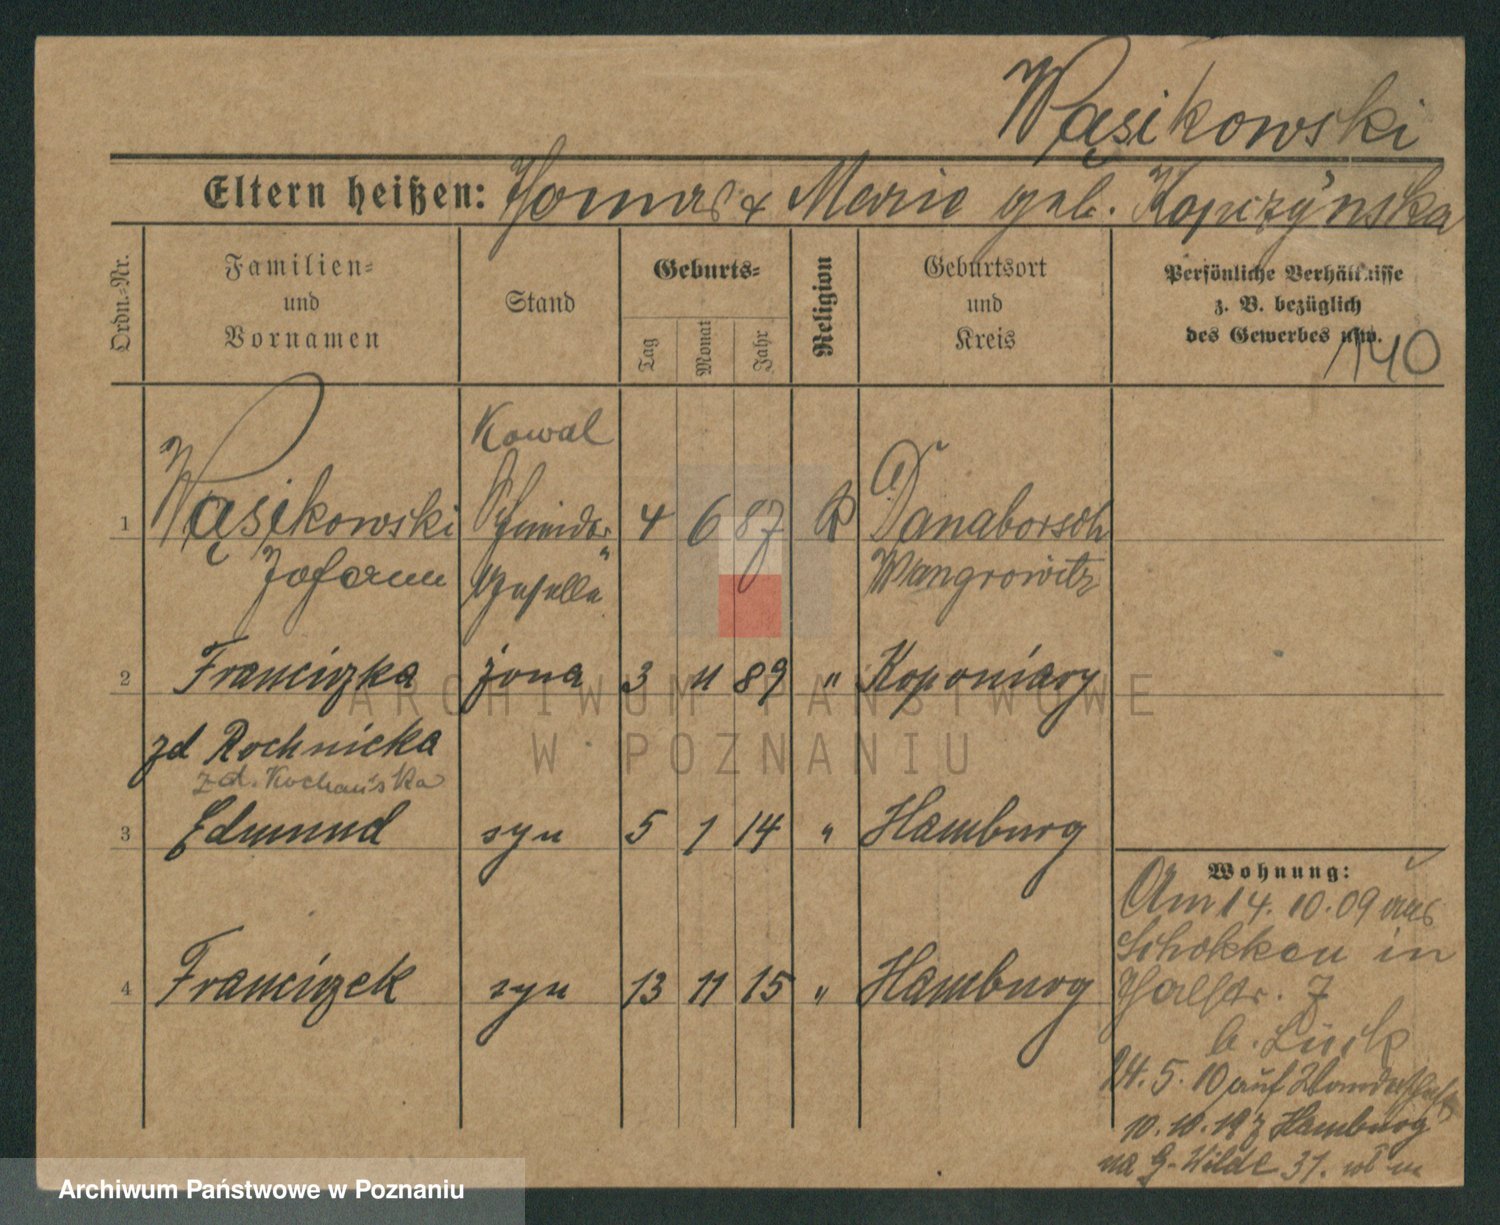 Wąsikowski
Eltern heißen: Thomas & Marie geb. Kopczynska
Ordn.-Nr.
Familien-
und
Vornamen
Stand
Geburts-
Tag
Monat
Jahr
Religion
Geburtsort
und
Kreis
Persönliche Verhältnisse
z. B. bezüglich
des Gewerbes usw.
140
Kowal
1 Wąsikowski Schmiede 4 6 87 K Danaborsch
Johann Geselle Wangrowitz
2 Franciszka żona 3 11 89 " Koponiary
zd Rochnicka
zd. Kochańska
3 Edmund syn 5 1 14 " Hamburg
4 Franciszek syn 13 11 15 " Hamburg
Wohnung:
Am 14. 10. 09 aus
Schokken in
7
b. Lück
24. 5. 10 auf Wanderschaft
10. 10. 19 z Hamburg
na G. Wilde 37.
ARCHIWUM PAŃSTWOWE
W POZNANIU
Archiwum Państwowe w Poznaniu